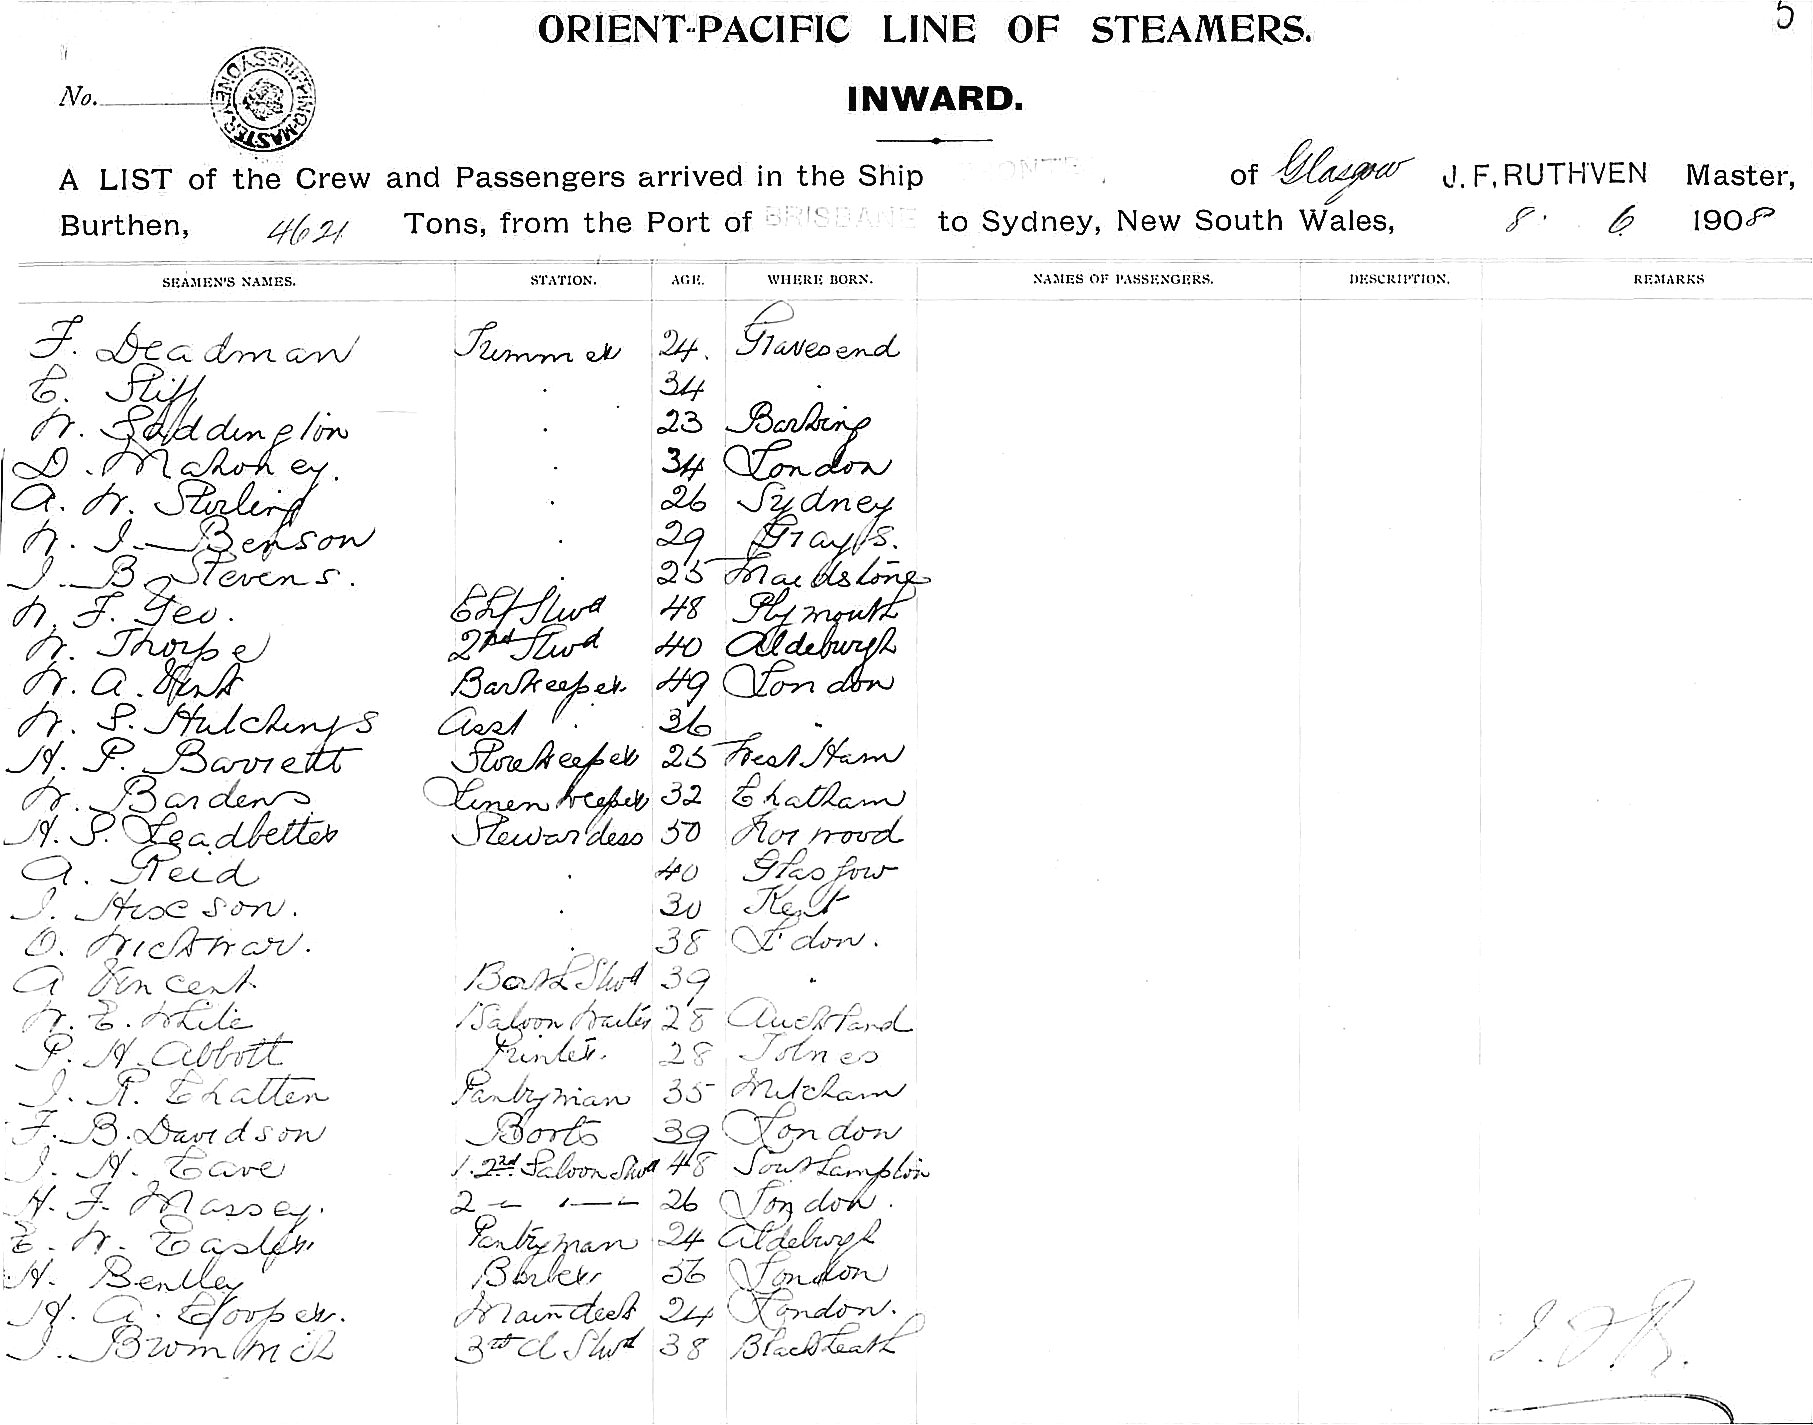 5
ORIENT-PACIFIC LINE OF STEAMERS.
No.
INWARD.
A LIST of the Crew and Passengers arrived in the Ship of Glasgow J. F. RUTHVEN Master,
Burthen, 4621 Tons, from the Port of BRISBANE to Sydney, New South Wales, 8. 6 1908
SEAMEN'S NAMES. STATION. AGE. WHERE BORN. NAMES OF PASSENGERS. DESCRIPTION. REMARKS
F. Deadman Trimmer 24. Gravesend
E. Stiff . 34 .
W. Saddington . 23 Barking
D. Mahoney. . 34 London
A. W. Sterling . 26 Sydney
W. J. Benson . 29 Grays.
J. B. Stevens. . 25 Maidstone
W. F. Yeo. Chf Stwd 48 Plymouth
W. Thorpe 2nd Stwd 40 Aldeburgh
W. A. Barkeeper 49 London
W. S. Hutchings Asst " 36 "
H. P. Barrett Storekeeper 25 West Ham
W. Bardens Linenkeeper 32 Chatham
H. S. Leadbetter Stewardess 50 Norwood
A. Reid . 40 Glasgow
J. Hixson. . 30 Kent
O. Wickwar. . 38 Ldon.
A Vincent Bath Stwd 39 "
W. E. White Saloon Waiter 28 Auckland
P. H. Abbott Printer. 28 Totnes
J. R. Chatten Pantryman 35 Mitcham
F. B. Davidson Boots 39 London
J. H. Cave 1. 2nd Saloon Stwd 48 Southampton
H. F. Massey. 2 " " 26 London.
E. W. Easter Pantryman 24 Aldeburgh
H. Bentley Barber 36 London
H. A. Cooper. Main deck 24 London.
J. Brommich 3rd Cl Stwd 38 Blackheath
J. F. R.